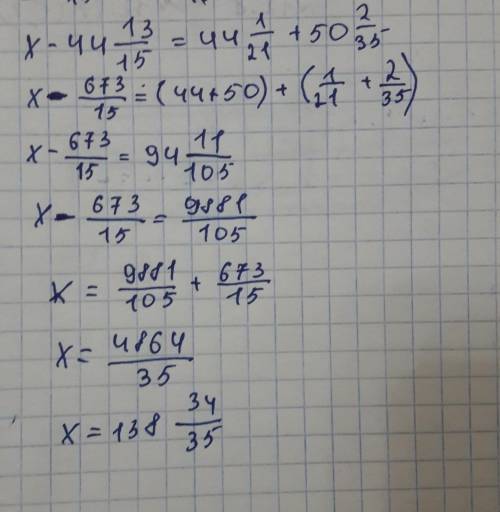 x - 44 13/15 = 44 1/21 + 50 2/35
x - 673/15 = (44+50) + (1/21 + 2/35)
x - 673/15 = 94 11/105
x - 673/15 = 9881/105
x = 9881/105 + 673/15
x = 4864/35
x = 138 34/35